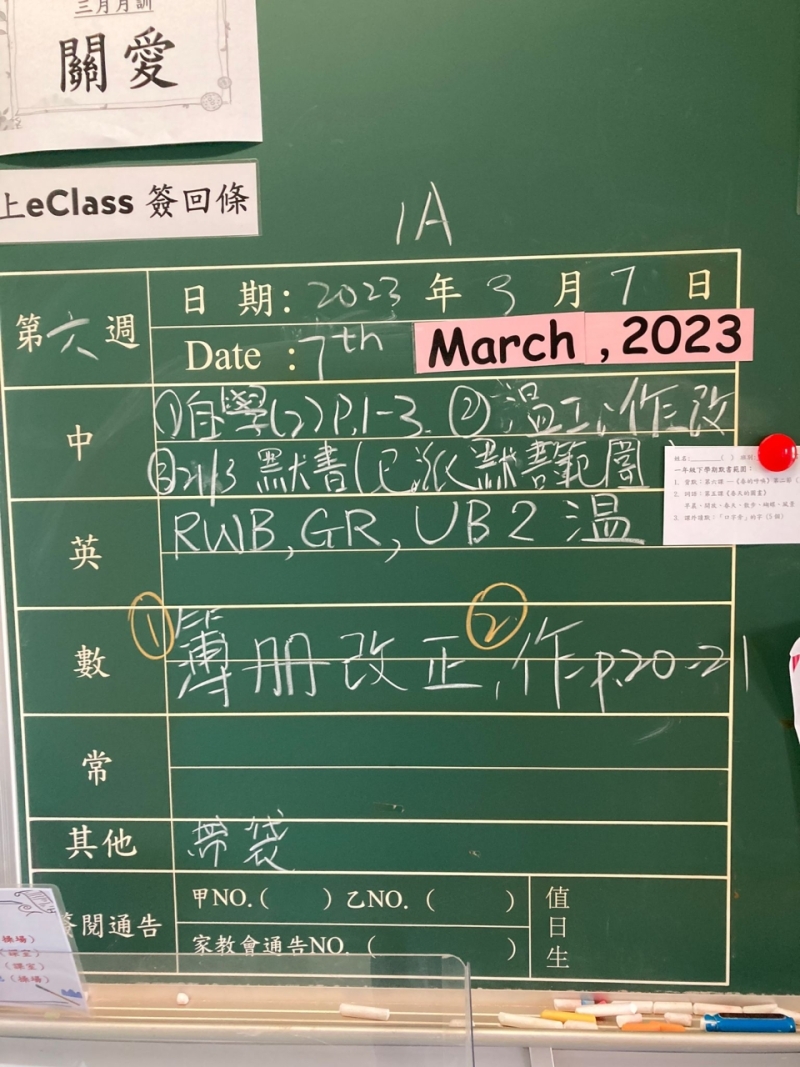 三月月訓
關愛
上eClass 簽回條
1A
第六週
日 期: 2023 年 3 月 7 日
Date : 7th March , 2023
中
①自學(2)P.1-3. ②溫工,作改
③21/3 默書(已派默書範圍)
英
RWB, GR, UB2 溫
數
① 簿冊改正, ② 作p.20-21
常
其他
帶袋
簽閱通告
甲NO.( ) 乙NO. ( )
家教會通告NO. ( )
值日生
一年級下學期默書範圍：
(操場)
(課室)
(課室)
(操場)